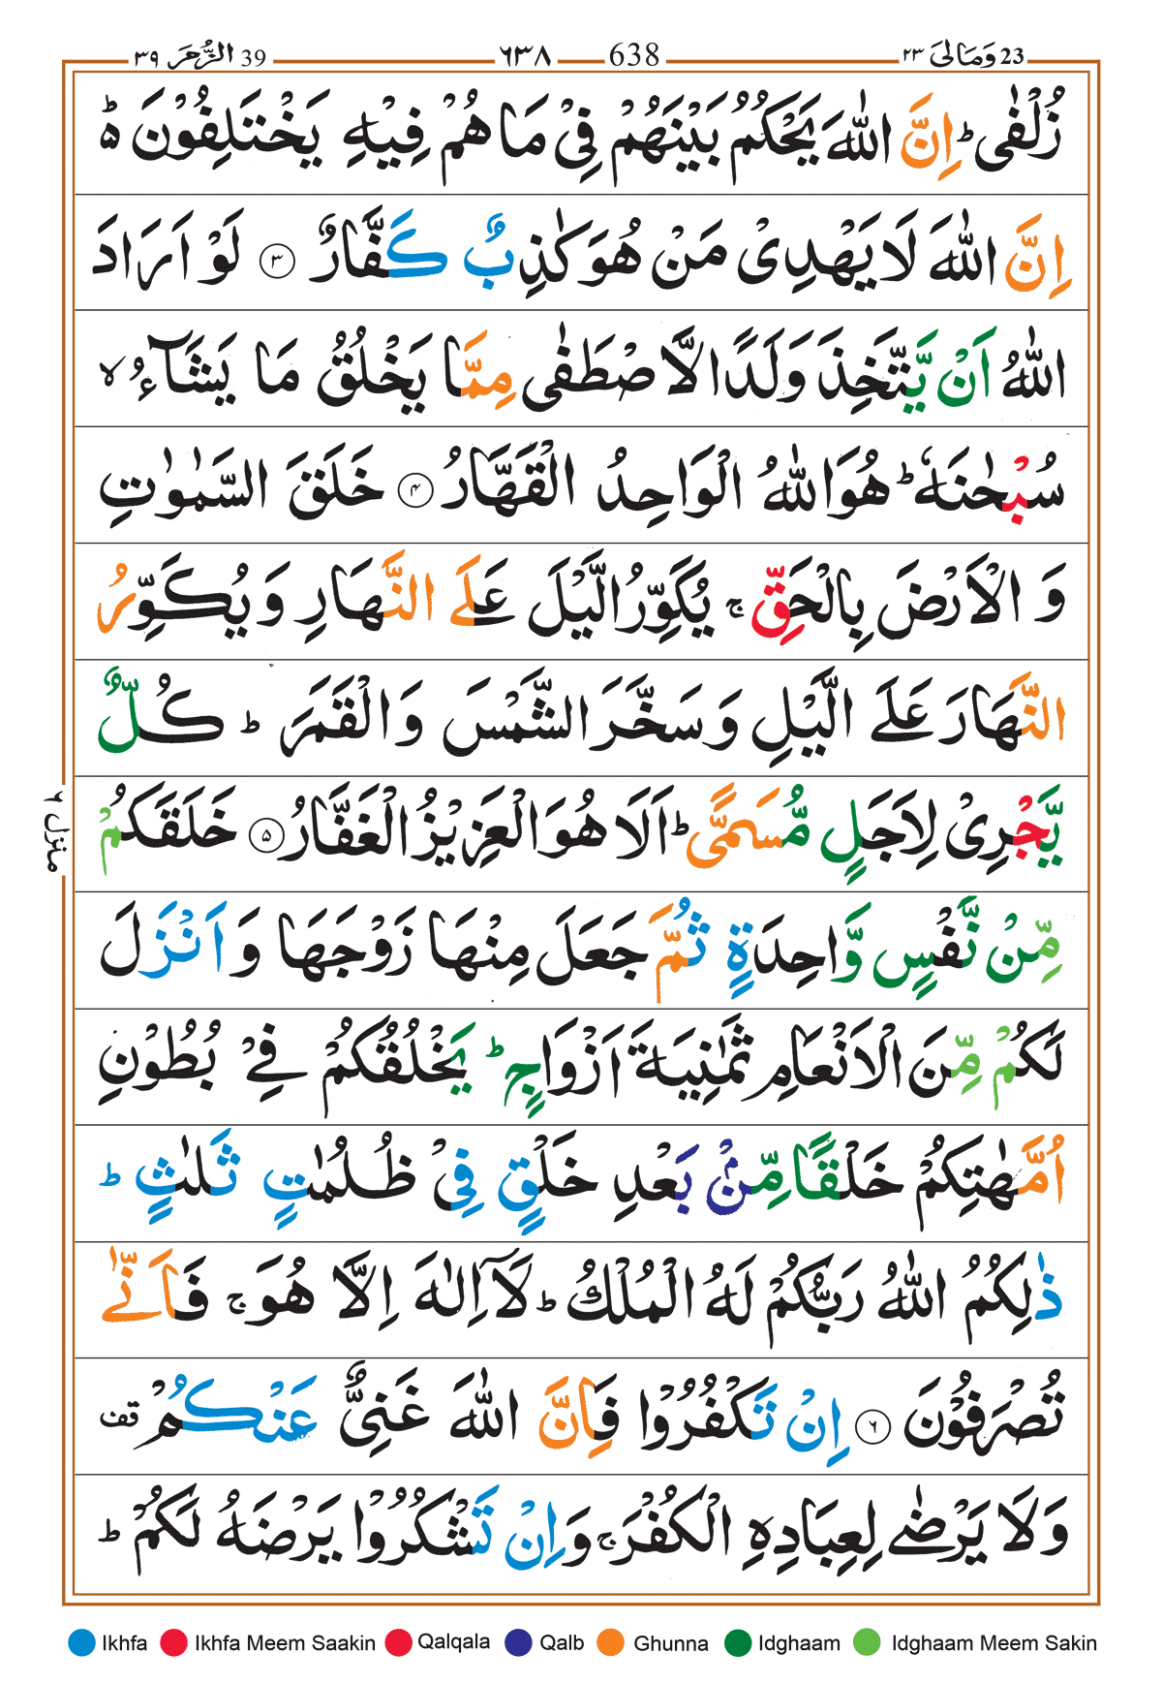 39 الزُّمَر ٣٩ ٦٣٨ 638 وَمَالِیَ ٢٣ 23
زُلْفٰی ؕ اِنَّ اللّٰهَ یَحْكُمُ بَیْنَهُمْ فِیْ مَا هُمْ فِیْهِ یَخْتَلِفُوْنَ ۬ؕ
اِنَّ اللّٰهَ لَا یَهْدِیْ مَنْ هُوَ كٰذِبٌ كَفَّارٌ ٣ لَوْ اَرَادَ
اللّٰهُ اَنْ یَّتَّخِذَ وَلَدًا لَّا صْطَفٰی مِمَّا یَخْلُقُ مَا یَشَآءُ ۙ
سُبْحٰنَهٗ ؕ هُوَ اللّٰهُ الْوَاحِدُ الْقَهَّارُ ٤ خَلَقَ السَّمٰوٰتِ
وَ الْاَرْضَ بِالْحَقِّ ۚ یُكَوِّرُ الَّیْلَ عَلَی النَّهَارِ وَ یُكَوِّرُ
النَّهَارَ عَلَی الَّیْلِ وَ سَخَّرَ الشَّمْسَ وَ الْقَمَرَ ؕ كُلٌّ
یَّجْرِیْ لِاَجَلٍ مُّسَمًّی ؕ اَلَا هُوَ الْعَزِیْزُ الْغَفَّارُ ٥ خَلَقَكُمْ
مِّنْ نَّفْسٍ وَّاحِدَةٍ ثُمَّ جَعَلَ مِنْهَا زَوْجَهَا وَ اَنْزَلَ
لَكُمْ مِّنَ الْاَنْعَامِ ثَمٰنِیَةَ اَزْوَاجٍ ؕ یَخْلُقُكُمْ فِیْ بُطُوْنِ
اُمَّهٰتِكُمْ خَلْقًا مِّنْۢ بَعْدِ خَلْقٍ فِیْ ظُلُمٰتٍ ثَلٰثٍ ؕ
ذٰلِكُمُ اللّٰهُ رَبُّكُمْ لَهُ الْمُلْكُ ؕ لَاۤ اِلٰهَ اِلَّا هُوَ ۚ فَاَنّٰی
تُصْرَفُوْنَ ٦ اِنْ تَكْفُرُوْا فَاِنَّ اللّٰهَ غَنِیٌّ عَنْكُمْ قف
وَلَا یَرْضٰی لِعِبَادِهِ الْكُفْرَ ۚ وَ اِنْ تَشْكُرُوْا یَرْضَهُ لَكُمْ ؕ
منزل ٦
Ikhfa Ikhfa Meem Saakin Qalqala Qalb Ghunna Idghaam Idghaam Meem Sakin